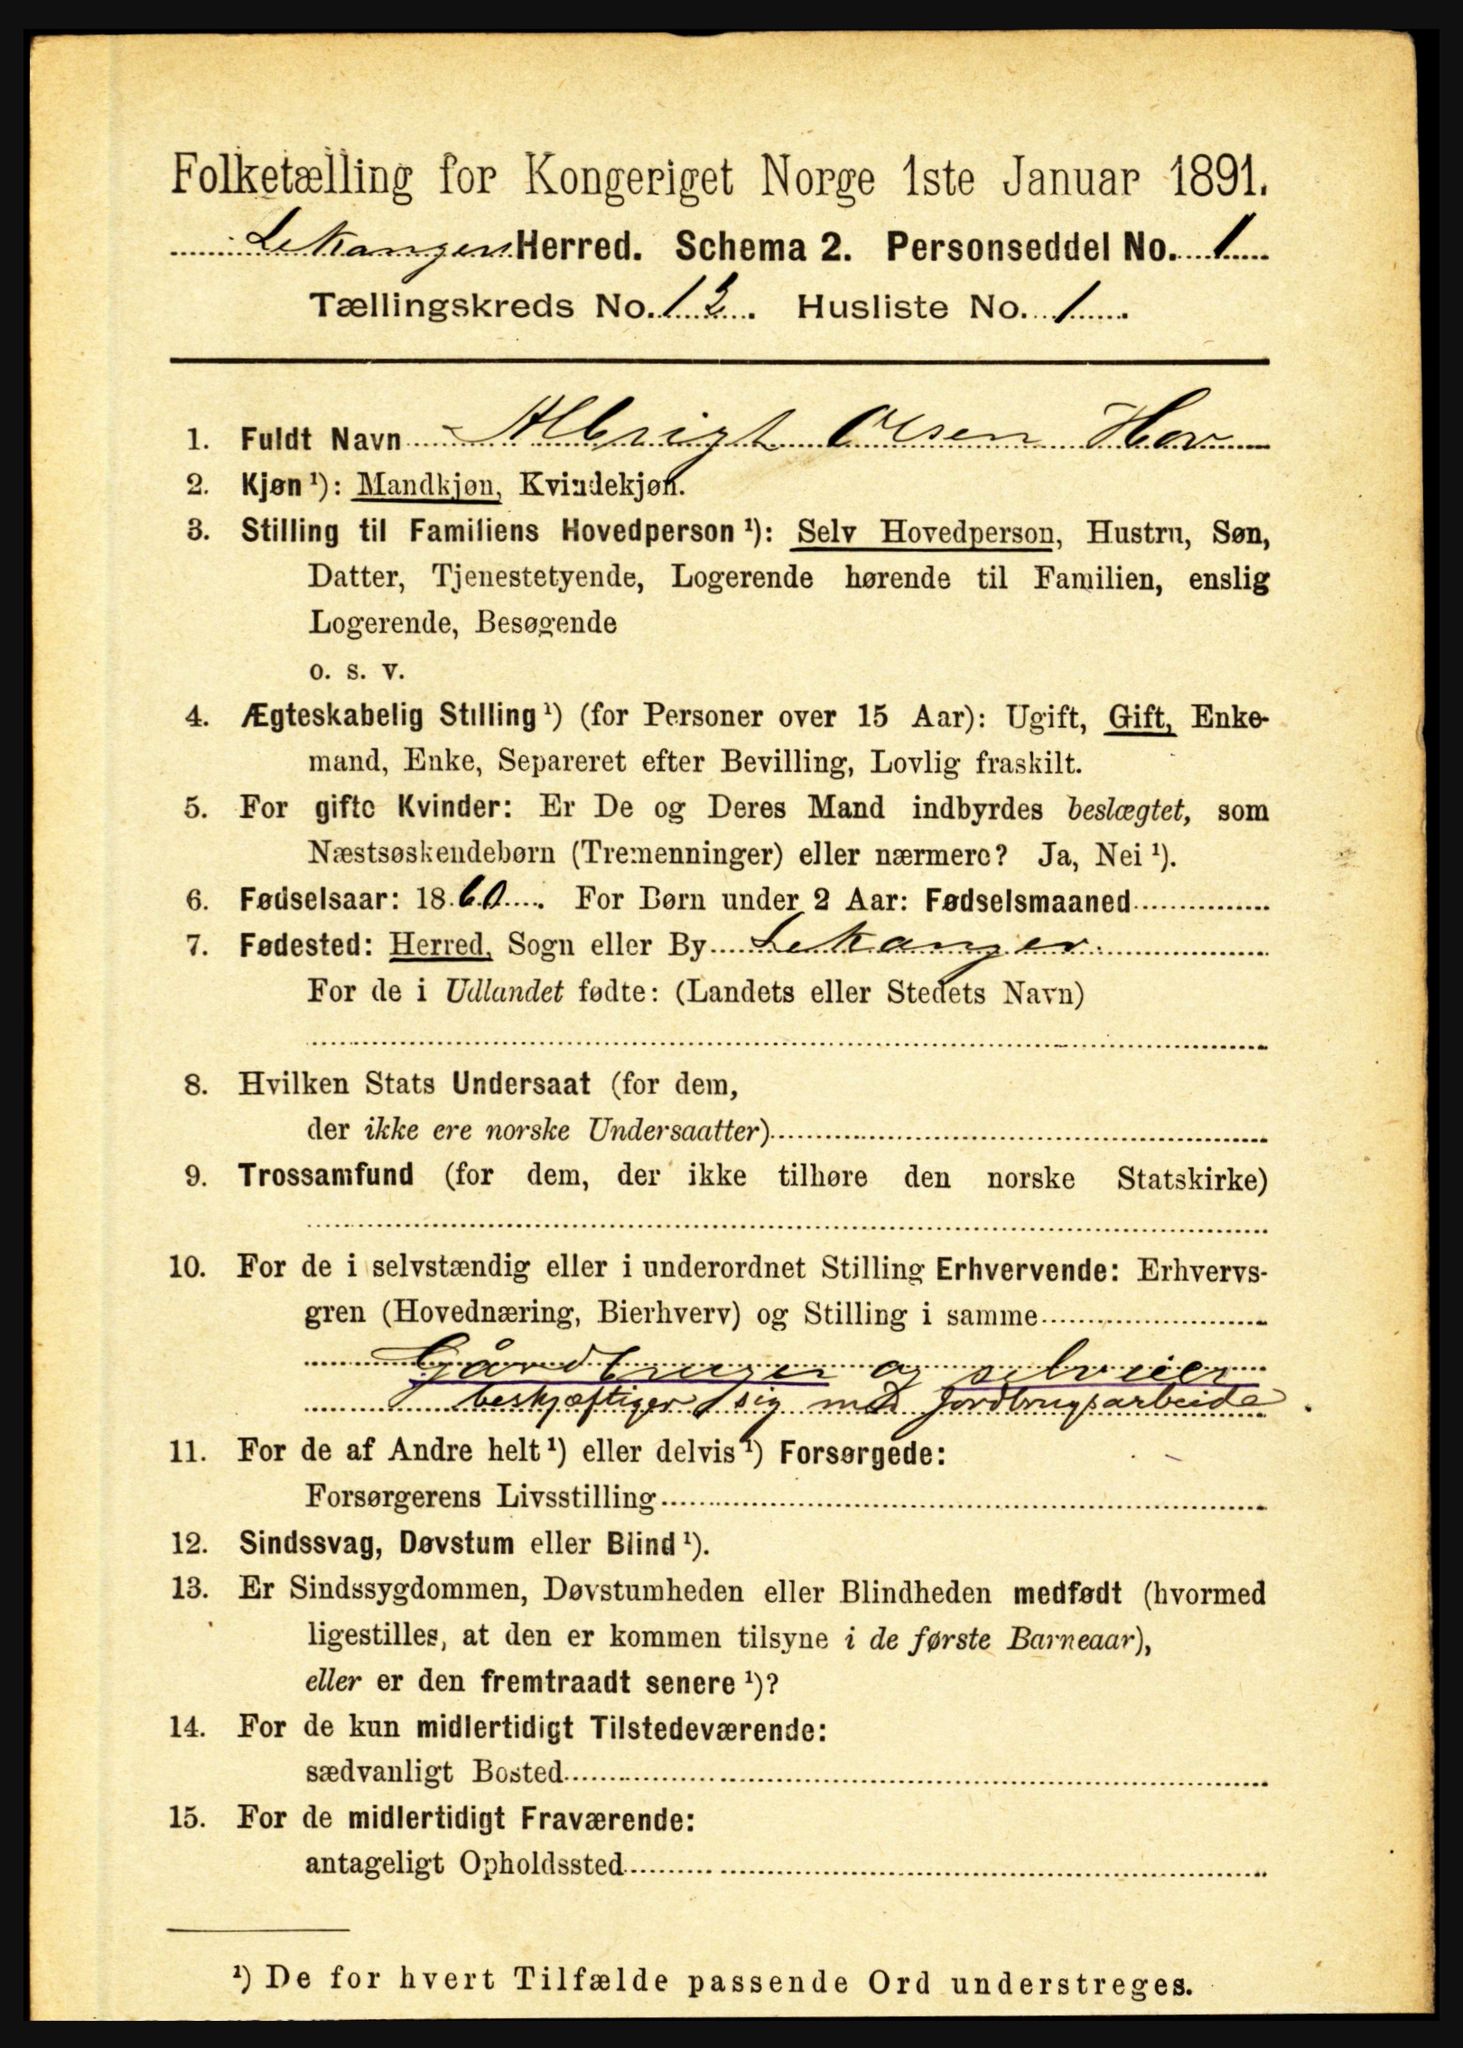 Folketælling for Kongeriget Norge 1ste Januar 1891.
Lekanger Herred. Schema 2. Personseddel No. 1
Tællingskreds No. 12. Husliste No. 1.
1. Fuldt Navn Albrigt Olsen Hov
2. Kjøn¹): Mandkjøn, Kvindekjøn.
3. Stilling til Familiens Hovedperson¹): Selv Hovedperson, Hustru, Søn,
Datter, Tjenestetyende, Logerende hørende til Familien, enslig
Logerende, Besøgende
o. s. v.
4. Ægteskabelig Stilling¹) (for Personer over 15 Aar): Ugift, Gift, Enke-
mand, Enke, Separeret efter Bevilling, Lovlig fraskilt.
5. For gifte Kvinder: Er De og Deres Mand indbyrdes beslægtet, som
Næstsøskendebørn (Tremenninger) eller nærmere? Ja, Nei¹).
6. Fødselsaar: 1860. For Børn under 2 Aar: Fødselsmaaned
7. Fødested: Herred, Sogn eller By Lekanger
For de i Udlandet fødte: (Landets eller Stedets Navn)
8. Hvilken Stats Undersaat (for dem,
der ikke ere norske Undersaatter)
9. Trossamfund (for dem, der ikke tilhøre den norske Statskirke)
10. For de i selvstændig eller i underordnet Stilling Erhvervende: Erhvervs-
gren (Hovednæring, Bierhverv) og Stilling i samme
Gårdbruger og selveier
beskjæftiger sig med Jordbrugsarbeide.
11. For de af Andre helt¹) eller delvis¹) Forsørgede:
Forsørgerens Livsstilling
12. Sindssvag, Døvstum eller Blind¹).
13. Er Sindssygdommen, Døvstumheden eller Blindheden medfødt (hvormed
ligestilles, at den er kommen tilsyne i de første Barneaar),
eller er den fremtraadt senere¹)?
14. For de kun midlertidigt Tilstedeværende:
sædvanligt Bosted
15. For de midlertidigt Fraværende:
antageligt Opholdssted
¹) De for hvert Tilfælde passende Ord understreges.